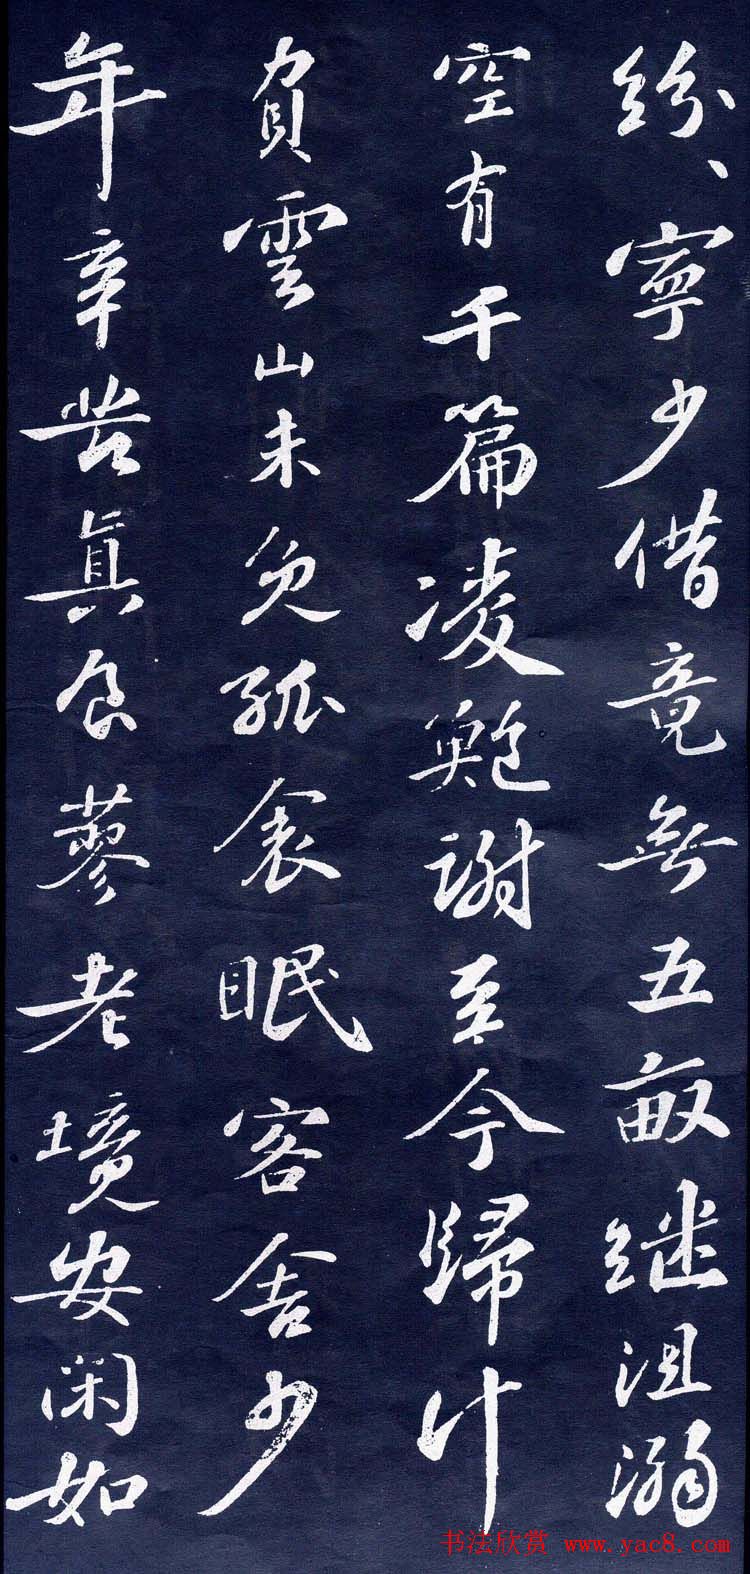 紛、寧少借竟無五畝继沮溺
空有千篇凌鮑謝至今歸计
負雲山未免孤衾眠客舍少
年辛苦真食蓼老境安闲如
书法欣赏 www.yac8.com